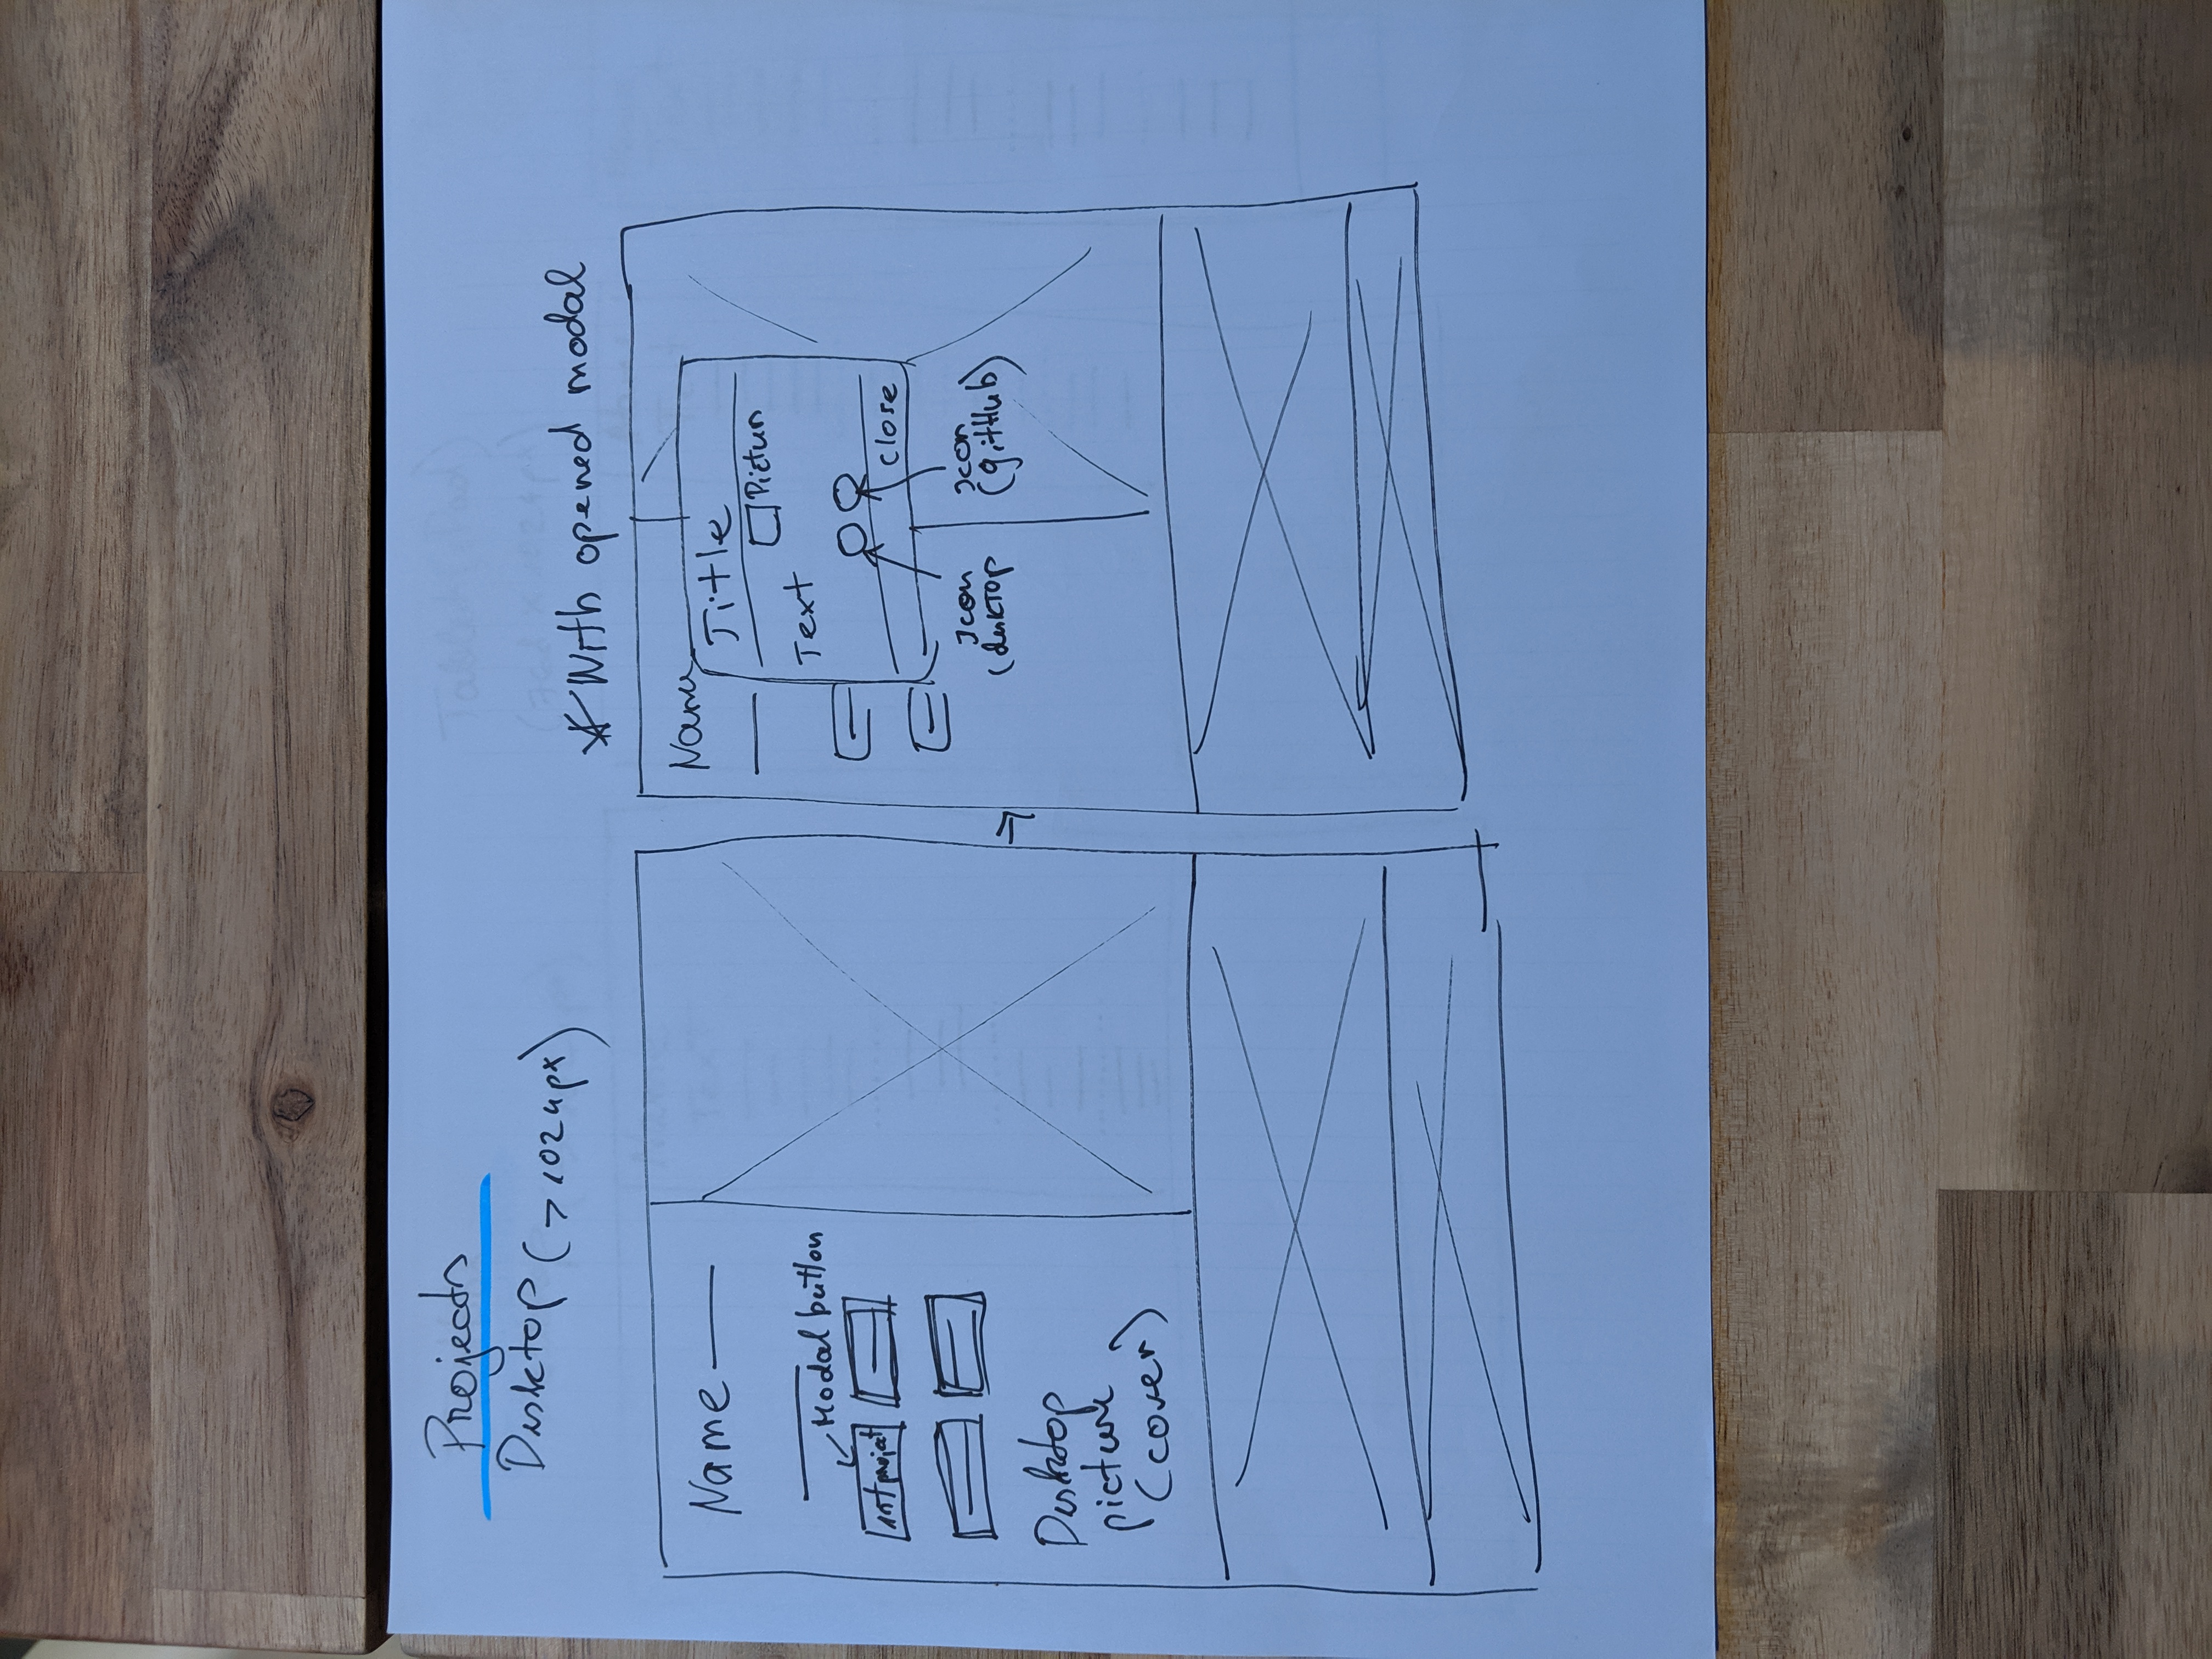 Projects
Desktop (> 1024px)
Name
Modal button
1st project
Desktop
picture
(cover)
* With opened modal
Name
Title
Picture
Text
close
Icon
(desktop
Icon
(gitHub)